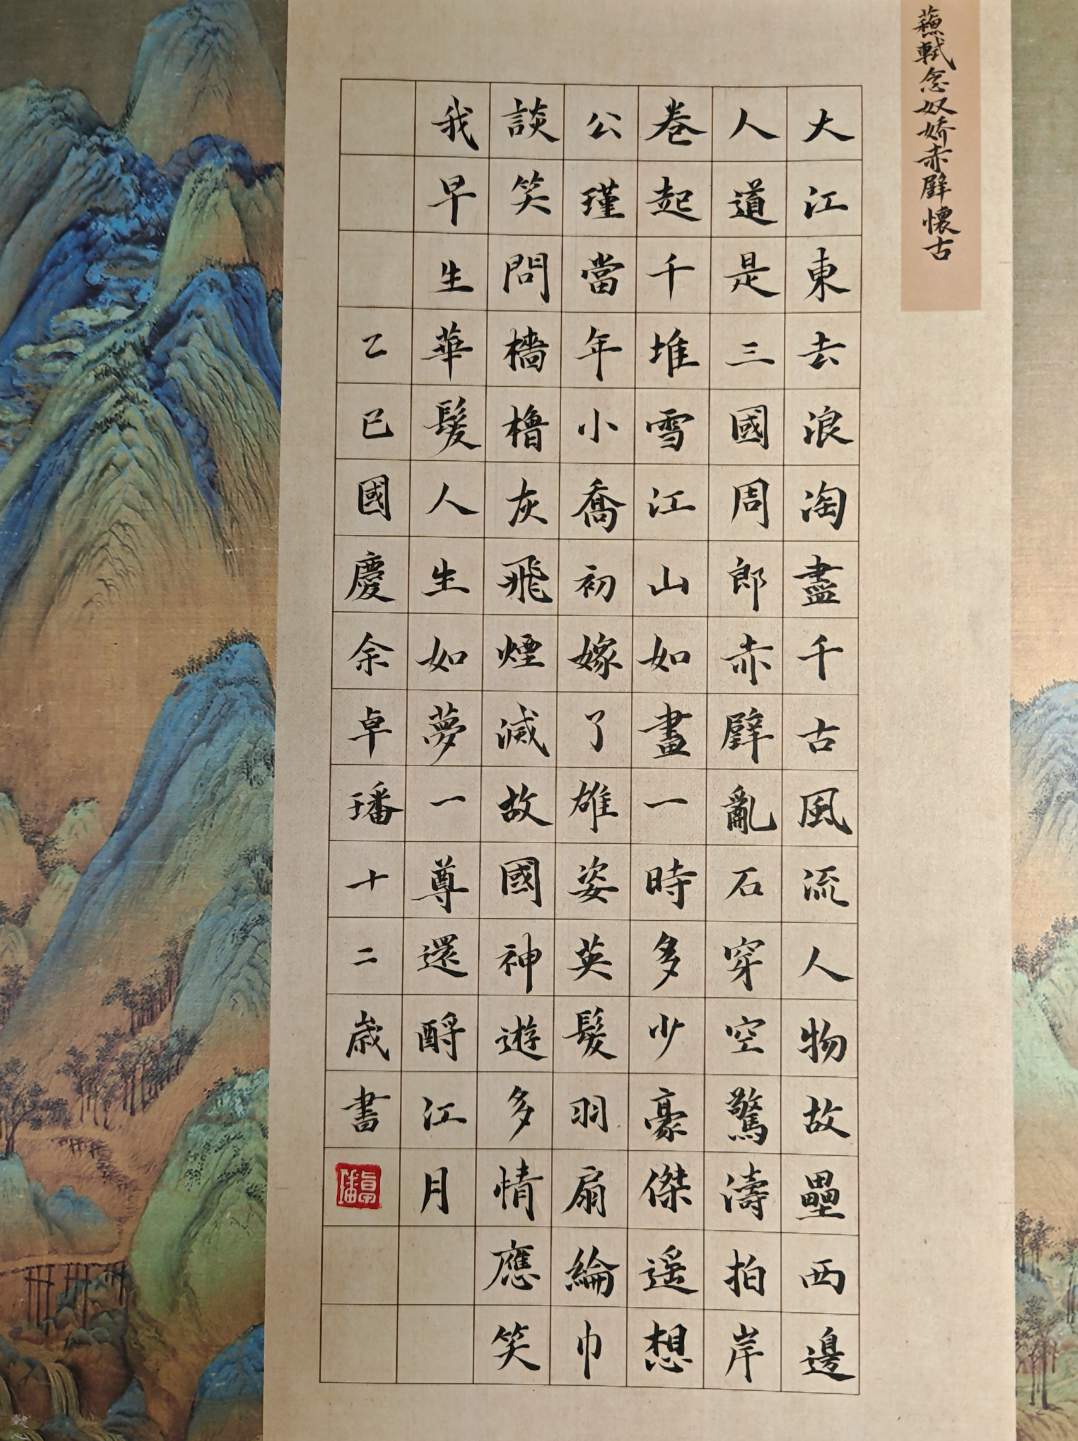 蘇軾念奴嬌赤壁懷古
大江東去浪淘盡千古風流人物故壘西邊
人道是三國周郎赤壁亂石穿空驚濤拍岸
卷起千堆雪江山如畫一時多少豪傑遥想
公瑾當年小喬初嫁了雄姿英髮羽扇綸巾
談笑問檣櫓灰飛煙滅故國神遊多情應笑
我早生華髮人生如夢一尊還酹江月
乙巳國慶余卓璠十二歲書